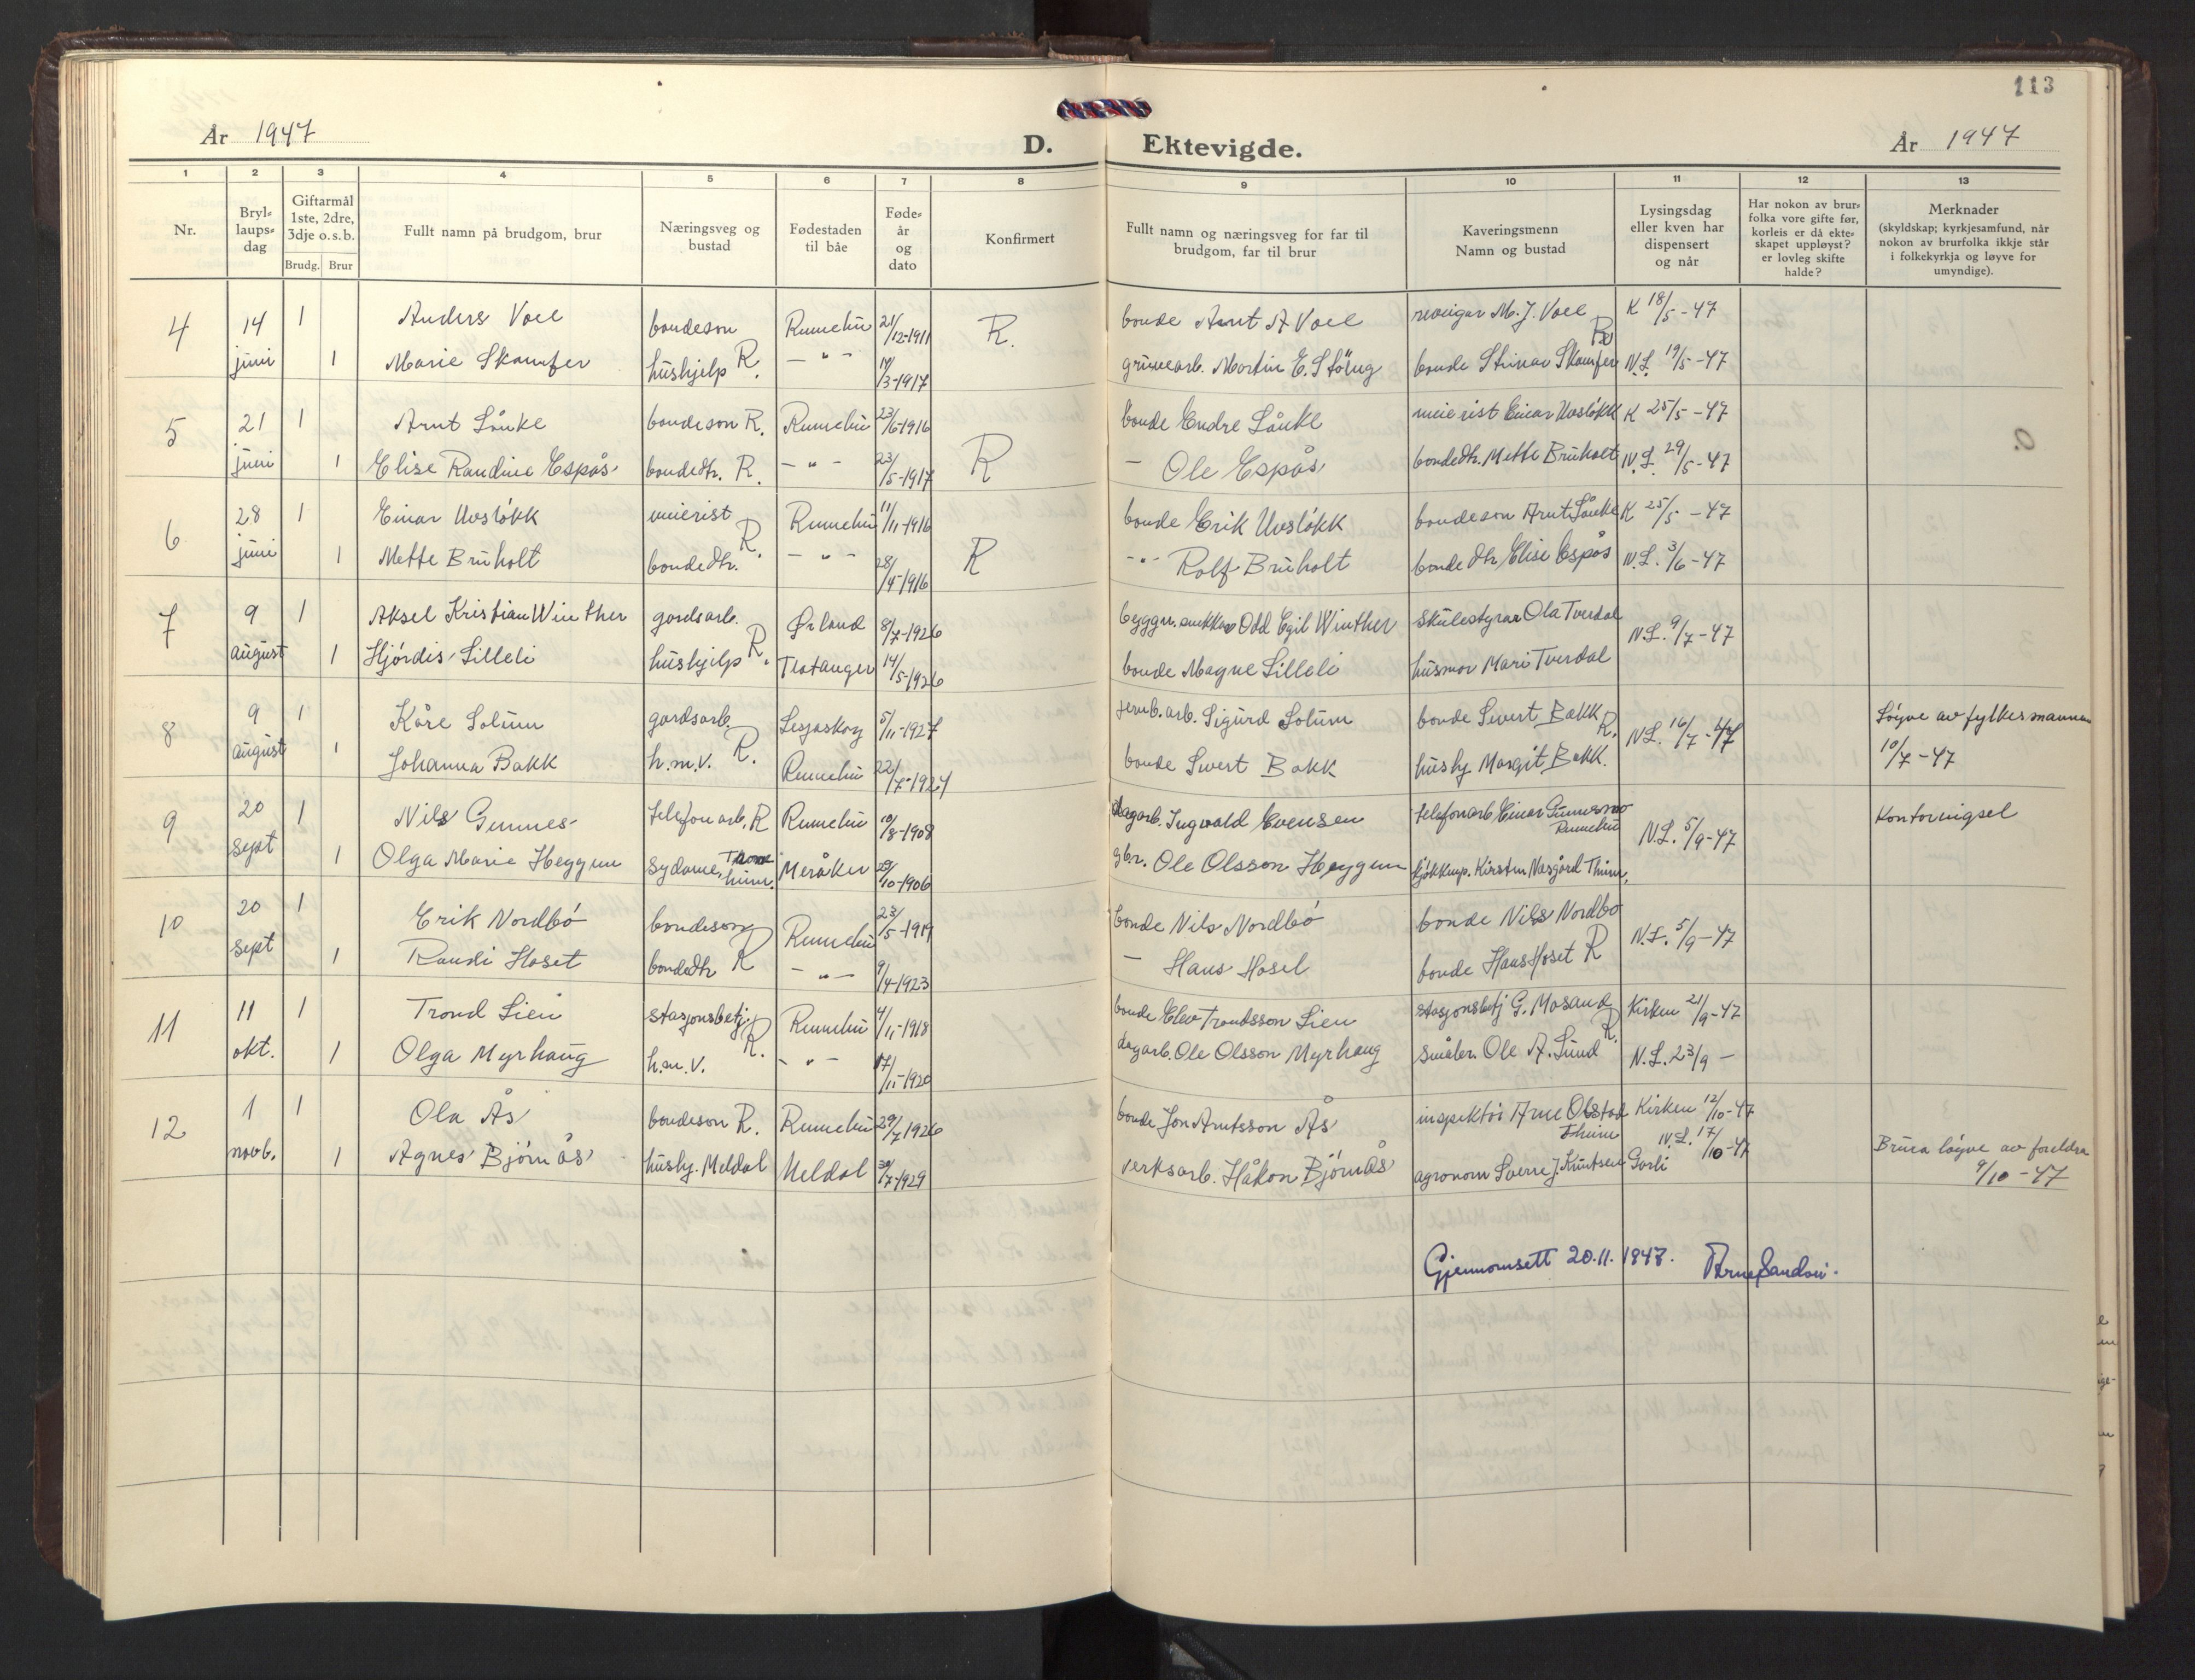 113
År 1947
D. Ektevigde.
År 1947
1 2 3 4 5 6 7 8 9 10 11 12 13
Nr.
Bryllaupsdag
Giftarmål 1ste, 2dre, 3dje o.s.b.
Brudg. Brur
Fullt namn på brudgom, brur
Næringsveg og bustad
Fødestaden til båe
Fødeår og dato
Konfirmert
Fullt namn og næringsveg for far til brudgom, far til brur
Kaveringsmenn Namn og bustad
Lysingsdag eller kven har dispensert og når
Har nokon av brurfolka vore gifte før, korleis er då ekteskapet uppløyst? er lovleg skifte halde?
Merknader (skyldskap; kyrkjesamfund, når nokon av brurfolka ikkje står i folkekyrkja og løyve for umyndige).
4 14 juni 1 Anders Voll bondeson Rennebu 21/12-1911 R. bonde Arnt A Voll reveigar M. J. Voll K 18/5-47
1 Marie Skamfer hushjelp R. - " - 14/3-1917 gruvearb. Martin E. Stölug bonde Steinar Skamfer N.L. 19/5-47
5 21 juni 1 Arnt Lånke bondeson R. Rennebu 23/6-1916 bonde Endre Lånke meierist Einar Uvsløkk K 25/5-47
1 Elise Randine Espås bondedtr. R. - " - 23/5-1917 R - Ole Espås bondedtr. Mette Bruholt N.L. 29/5-47
6 28 juni 1 Einar Uvsløkk meierist R. Rennebu 11/11-1916 bonde Erik Uvsløkk bondeson Arnt Lånke K 25/5-47
1 Mette Bruholt bondedtr. - " - 28/4-1916 R - " - Rolf Bruholt bondedtr Elise Espås N.L. 3/6-47
7 9 august 1 Aksel Kristian Winther gardsarb. R. Ørland 8/7-1926 byggn. snekker Odd Egil Winther skulestyrar Ola Tverdal N.L. 9/7-47
1 Hjørdis Lilleli hushjelp Flatanger 14/5-1926 bonde Magne Lilleli husmor Mari Tverdal
8 9 august 1 Kåre Solum gardsarb. R. Lesjaskog 5/11-1927 jernb. arb. Sigurd Solum bonde Sivert Bakk R. N.L. 16/7-47 Løyve av fylkesmannen
1 Johanna Bakk h.m.v. Rennebu 22/7-1924 bonde Sivert Bakk hushj Margit Bakk. 10/7-47
9 20 sept 1 Nils Gunnes telefonarb. R Rennebu 10/8-1908 dagarb. Ingvald Evensen telefonarb Einar Gunnesmo Rennebu N.L. 5/9-47 Kontorvigsel
1 Olga Marie Heggem sydame, Trondheim. Meråker 29/10-1906 gbr. Ole Olsson Heggem kjøkkenp. Kirsten Næsgård Theim.
10 20 sept 1 Erik Nordbø bondeson R Rennebu 23/5-1919 bonde Nils Nordbø bonde Nils Nordbø N.L. 5/9-47
1 Randi Hoset bondedtr - " - 9/4-1923 - Hans Hosel bonde Hans Hoset R
11 11 okt. 1 Trond Lien stasjonsbetj. R. Rennebu 4/11-1918 bonde Elev Trondsson Lien stasjonsbetj G. Mosand R. Kirken 21/9-47
1 Olga Myrhaug h.m.v. - " - 17/11-1920 dagarb. Ole Olsson Myrhaug småbr. Ole A. Lund N.L. 23/9 -
12 1 novb. 1 Ola Ås bondeson R. Rennebu 29/7 1926 bonde Jon Arntsson Ås inspektør Arne Olstad Theim Kirken 12/10-47
N.L. 17/10-47
1 Agnes Bjørnås hushj. Meldal Meldal 30/7-1929 verksarb. Håkon Bjørnås agronom Sverre J. Knutsen Gorli Brura løyve av foreldra
9/10-47
Gjennomsett 20.11.1947. Arne Sandvi.